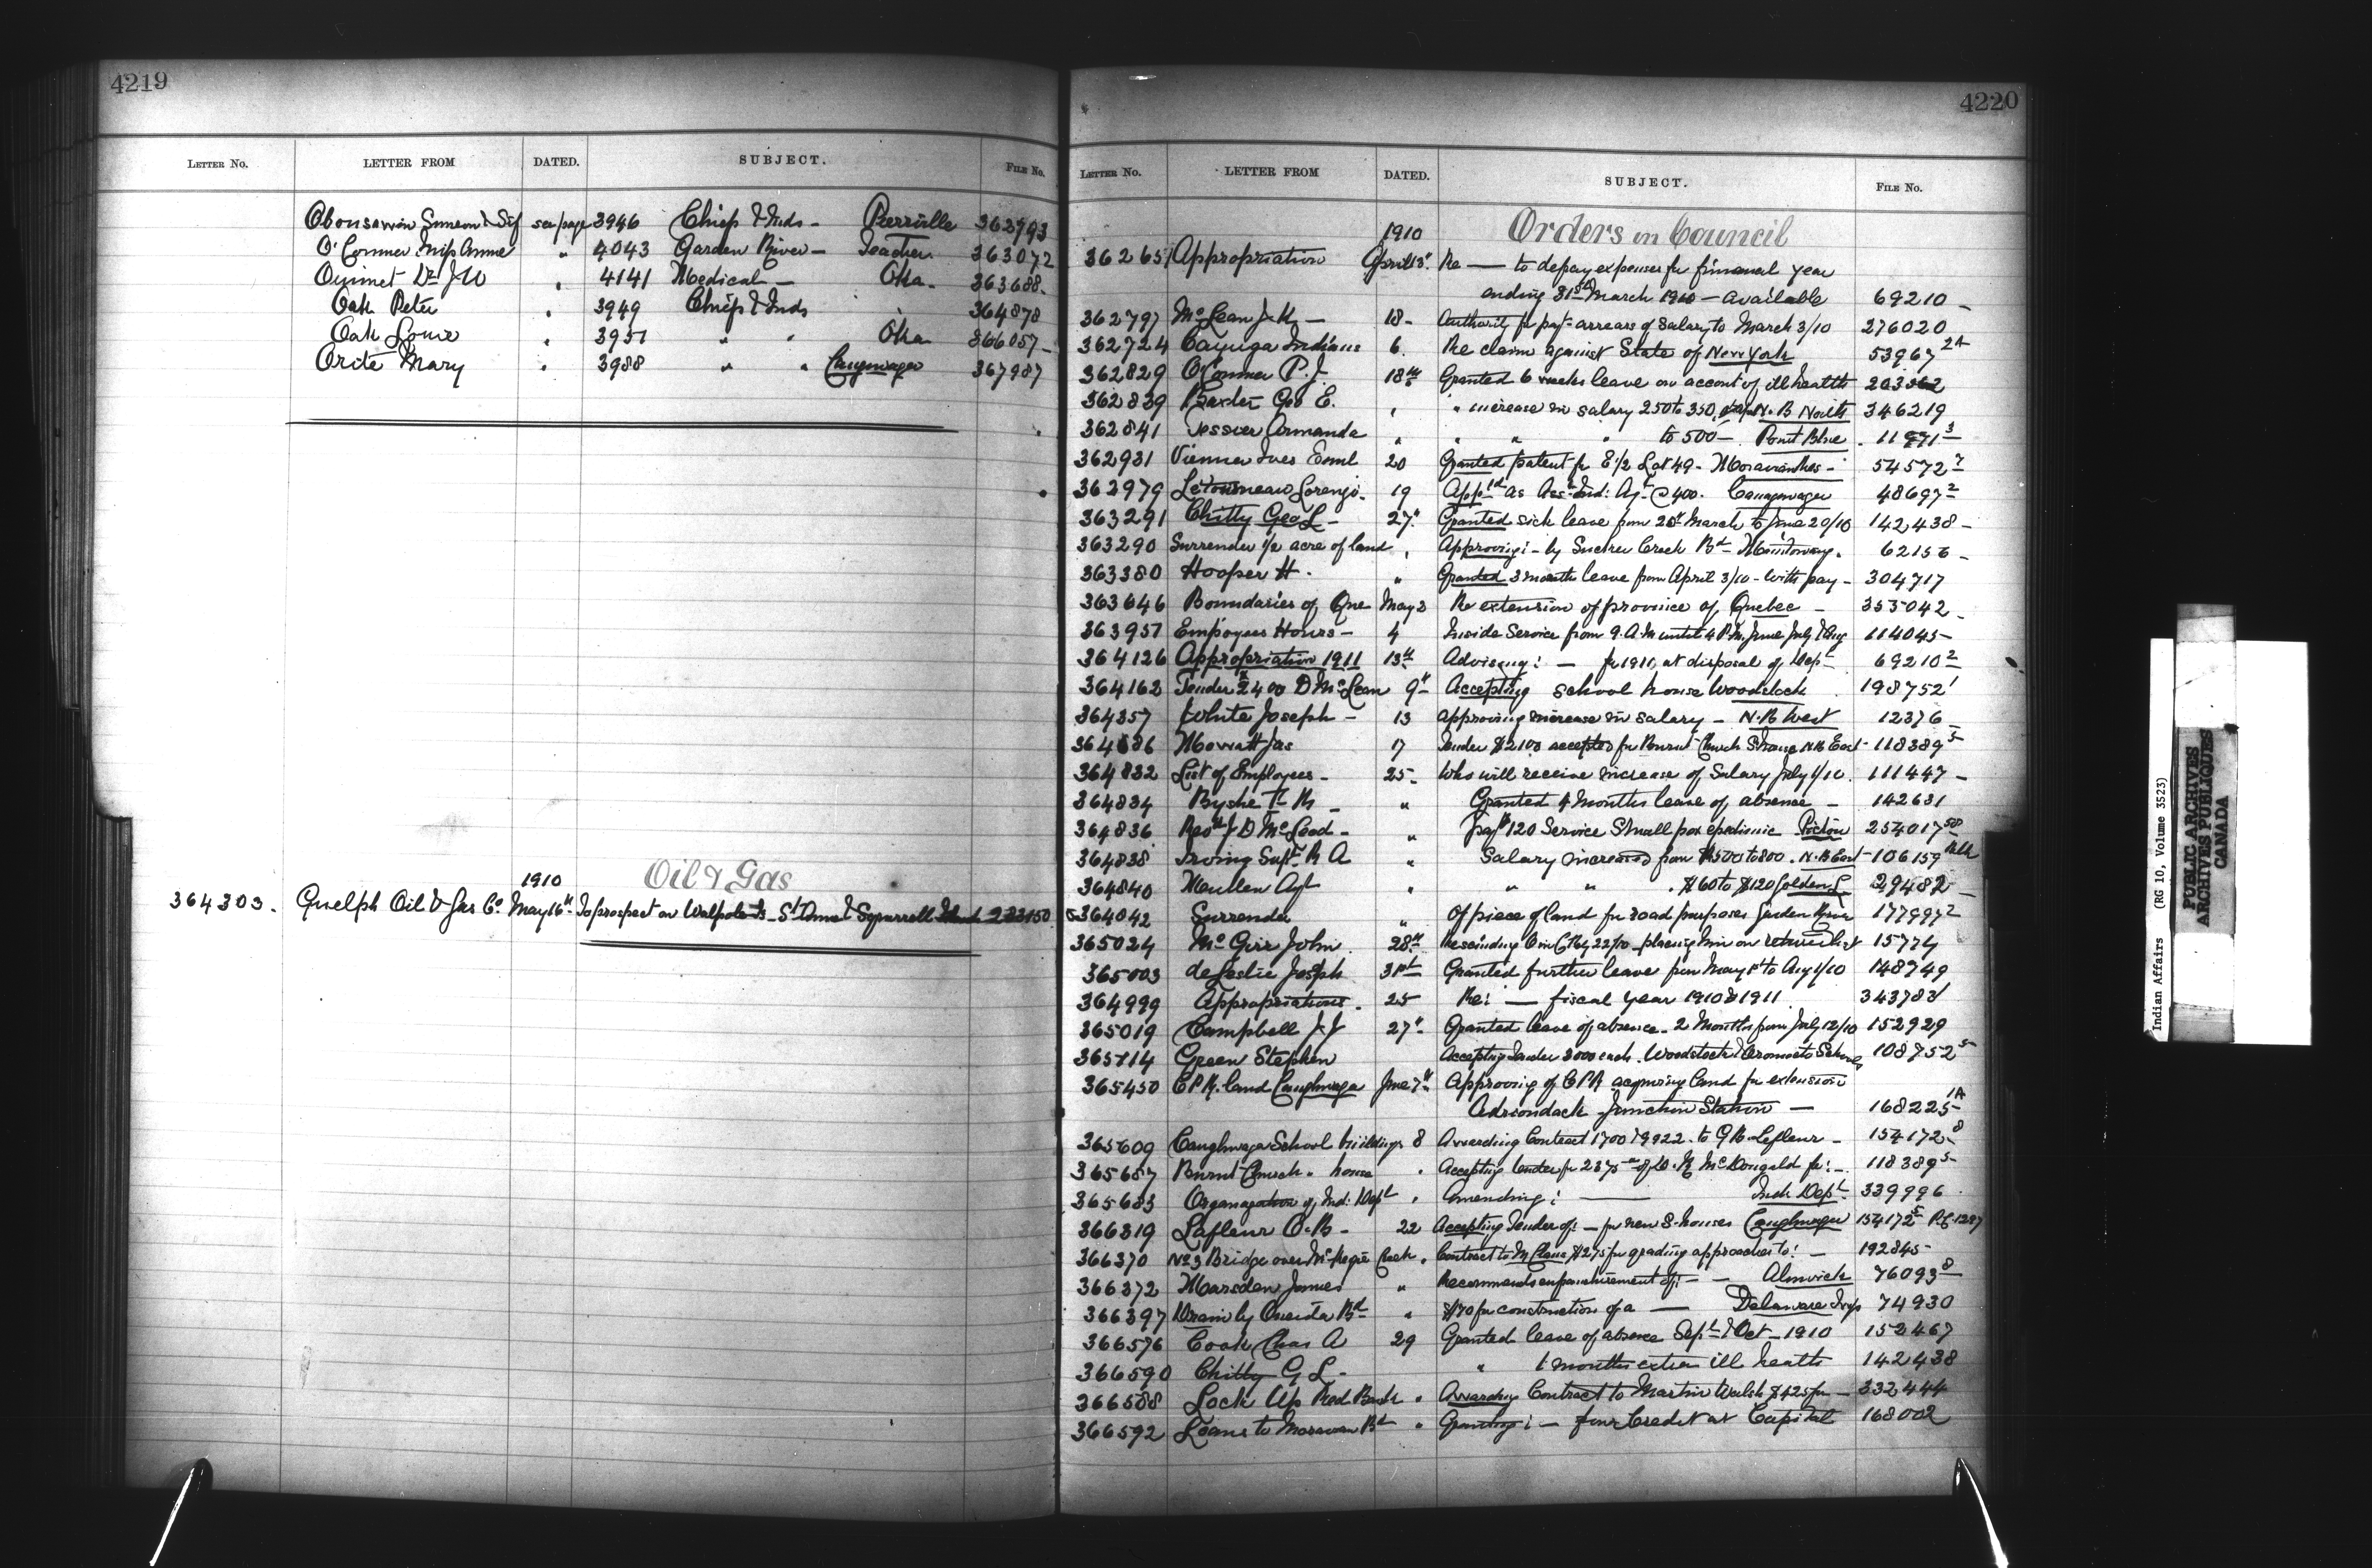 4219
LETTER No. LETTER FROM DATED. SUBJECT. FILE No.
Obonsawin Simeon & see page 3946 Chief & Inds - Pierville 362993
O'Connor Miss Annie " 4043 Garden River - Teacher 363072
Ouimet Dr J.U " 4141 Medical - Oka - 363688
Oak Peter " 3949 Chief & Inds " 364878
Oak Louis " 3951 " " Oka 366057
Orite Mary " 3988 " " Caughnawaga 367987
Oil & Gas
1910
364303. Guelph Oil & Gas Co May 16th To prospect on Walpole Is - St Anne & Squirrell Island 223150
4220
LETTER No. LETTER FROM DATED. SUBJECT. FILE No.
Orders in Council
1910
362651 Appropriation April 13" Re — to defray expenses for financial year
ending 31st March 1910 - available 69210
362797 McLean J.K - 18 - Authority for payt arrears of salary to March 3/10 276020
362724 Cayuga Indians 6. Re claim against State of New York 53967 2A
362829 O'Connor P.J 18th Granted 6 weeks leave on account of ill health 203362
362839 Baxter Geo E. " " increase in salary 250 to 350, N.B North 346219
362841 Tessier Armande " " " " to 500 - Point Blue 11971 3
362931 Vienneau Ives 20 Granted patent for E 1/2 Lot 49 - Moravianthes - 54572 7
362979 Letourneau Lorenzo - 19 Appd as Asst Ind: Agt @ 400. Caughnawaga 48697 2
363291 Chitty Geo L - 27" Granted sick leave from 20th March to June 20/10 142438
363290 Surrender 1/2 acre of land " Approving: - by Sucker Creek Bd - Manitowaning. 62156
363380 Hooper H. " Granted 3 months leave from April 3/10 - with pay - 304717
363646 Boundaries of Que May 3 Re extension of province of Quebec - 353042
363957 Employees Hours - 4 Inside Service from 9. A.M until 4 P.M. June July & Aug 114045
364126 Appropriation 1911 13th Advising: - for 1911, at disposal of Dept 69210 2
364162 Tender 2400 D McLean 9th Accepting school house Woodstock 198752 1
364357 White Joseph - 13 approving increase in salary - N.B West 12376
364686 Mowatt Jas 17 Tender $2100 accepted for Burnt Church S. house N.B East - 118389 5
364832 List of Employees - 25 - Who will receive increase of Salary July 1/10. 111447
364834 Byshe T. R - " Granted 4 Months leave of absence - 142631
364836 Revd J D McLeod - " payt 120 Service Small pox epedimic Pictou 254017 58
364838 Irving Supt R A " Salary increased from $500 to 800. N.B East - 106159
364840 Meullen Agt " " " $60 to $120 Golden L 29482
364042 Surrender " Of piece of land for road purposes Garden River 177997 2
365024 McGirr John 28th Rescinding O in C Feby 22/10 - placing him on retired list 15774
365003 deLeslie Joseph 31st Granted further leave from May 1st to Aug 1/10 148749
364999 Appropriations. 25 Re: — fiscal year 1910 & 1911 343783
365019 Campbell J.J 27" Granted leave of absence - 2 Months from July 12/10 152929
365114 Green Stephen Accepting Tender 3000 each. Woodstock & Oromocto Schools 108752 5
365450 C.P.R. land Caughnawaga June 7th Approving of C.P.R acquiring land for extension
Adirondack Junction Station — 168225 1A
365609 Caughnawaga School buildings 8 Awarding Contract 1700 & 9922. to O.B. Lafleur - 154172 8
365657 Burnt Church. house " Accepting tender for 2375 of D. K McDougald for: - 118389 5
365683 Organization of Ind: Dept " Amending: — Indn Dept. 339996
366319 Lafleur O.B - 22 Accepting Tender of: - for new S. houses Caughnawaga 154172 5
366370 No 3 Bridge over McKenzie Creek " Contract to $275 for grading approaches to: - 192845
366372 Marsden James " Recommends enfranchisement of: - Alnwick 76093 8
366397 Drain by Oneida Bd - " $170 for construction of a — Delaware Twp 74930
366576 Cook Chas A 29 Granted leave of absence Sept & Oct - 1910 152467
366590 Chitty G L - " 1 months extra ill health 142438
366588 Lock Up Red Bank " Awarding Contract to Martin Walsh $425 for - 332444
366592 Loans to Moravian Bd " Granting: - from Credit at Capital 168002
Indian Affairs (RG 10, Volume 3523)
PUBLIC ARCHIVES
ARCHIVES PUBLIQUES
CANADA